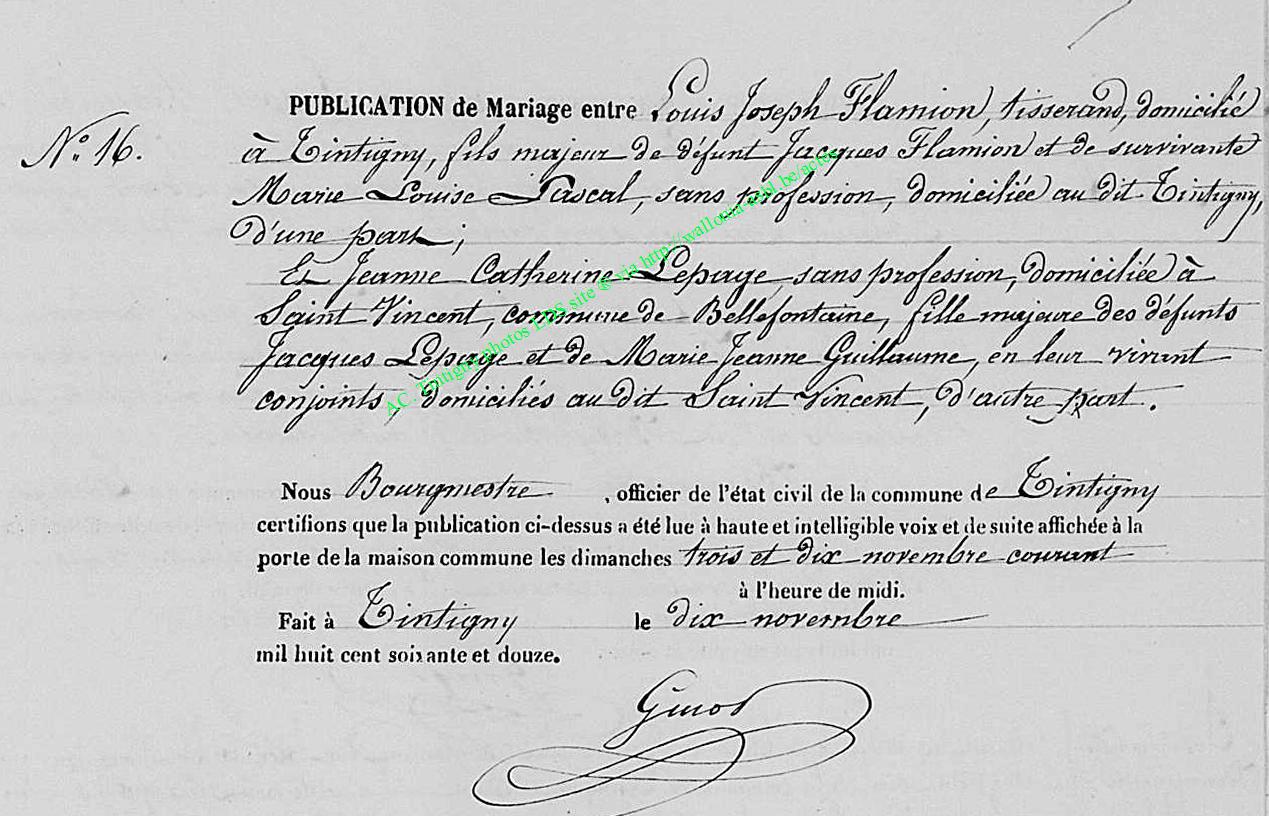 PUBLICATION de Mariage entre Louis Joseph Flamion, tisserand, domicilié
N.° 16.
à Tintigny, fils majeur de défunt Jacques Flamion et de survivante
Marie Louise Pascal, sans profession, domiciliée au dit Tintigny,
d'une part;
Et Jeanne Catherine Lepage, sans profession, domiciliée à
Saint Vincent, commune de Bellefontaine, fille majeure des défunts
Jacques Lepage et de Marie Jeanne Guillaume, en leur vivant
conjoints, domiciliés au dit Saint Vincent, d'autre part.
AC. Tintigny photos LDS site @ via http://wallonia-asbl.be/actes
Nous Bourgmestre, officier de l'état civil de la commune de Tintigny
certifions que la publication ci-dessus a été lue à haute et intelligible voix et de suite affichée à la
porte de la maison commune les dimanches trois et dix novembre courant
à l'heure de midi.
Fait à Tintigny le dix novembre
mil huit cent soixante et douze.